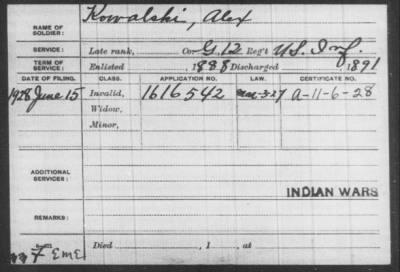 Kowalski, Alex
NAME OF SOLDIER:
SERVICE: Late rank, Co. G, 12 Reg't U.S. Inf.
TERM OF SERVICE: Enlisted , 1888 Discharged , 1891
DATE OF FILING. CLASS. APPLICATION NO. LAW. CERTIFICATE NO.
1928 June 15 Invalid, 1616542 3-27 A-11-6-28
Widow,
Minor,
ADDITIONAL SERVICES:
INDIAN WARS
REMARKS:
Died , 1 , at